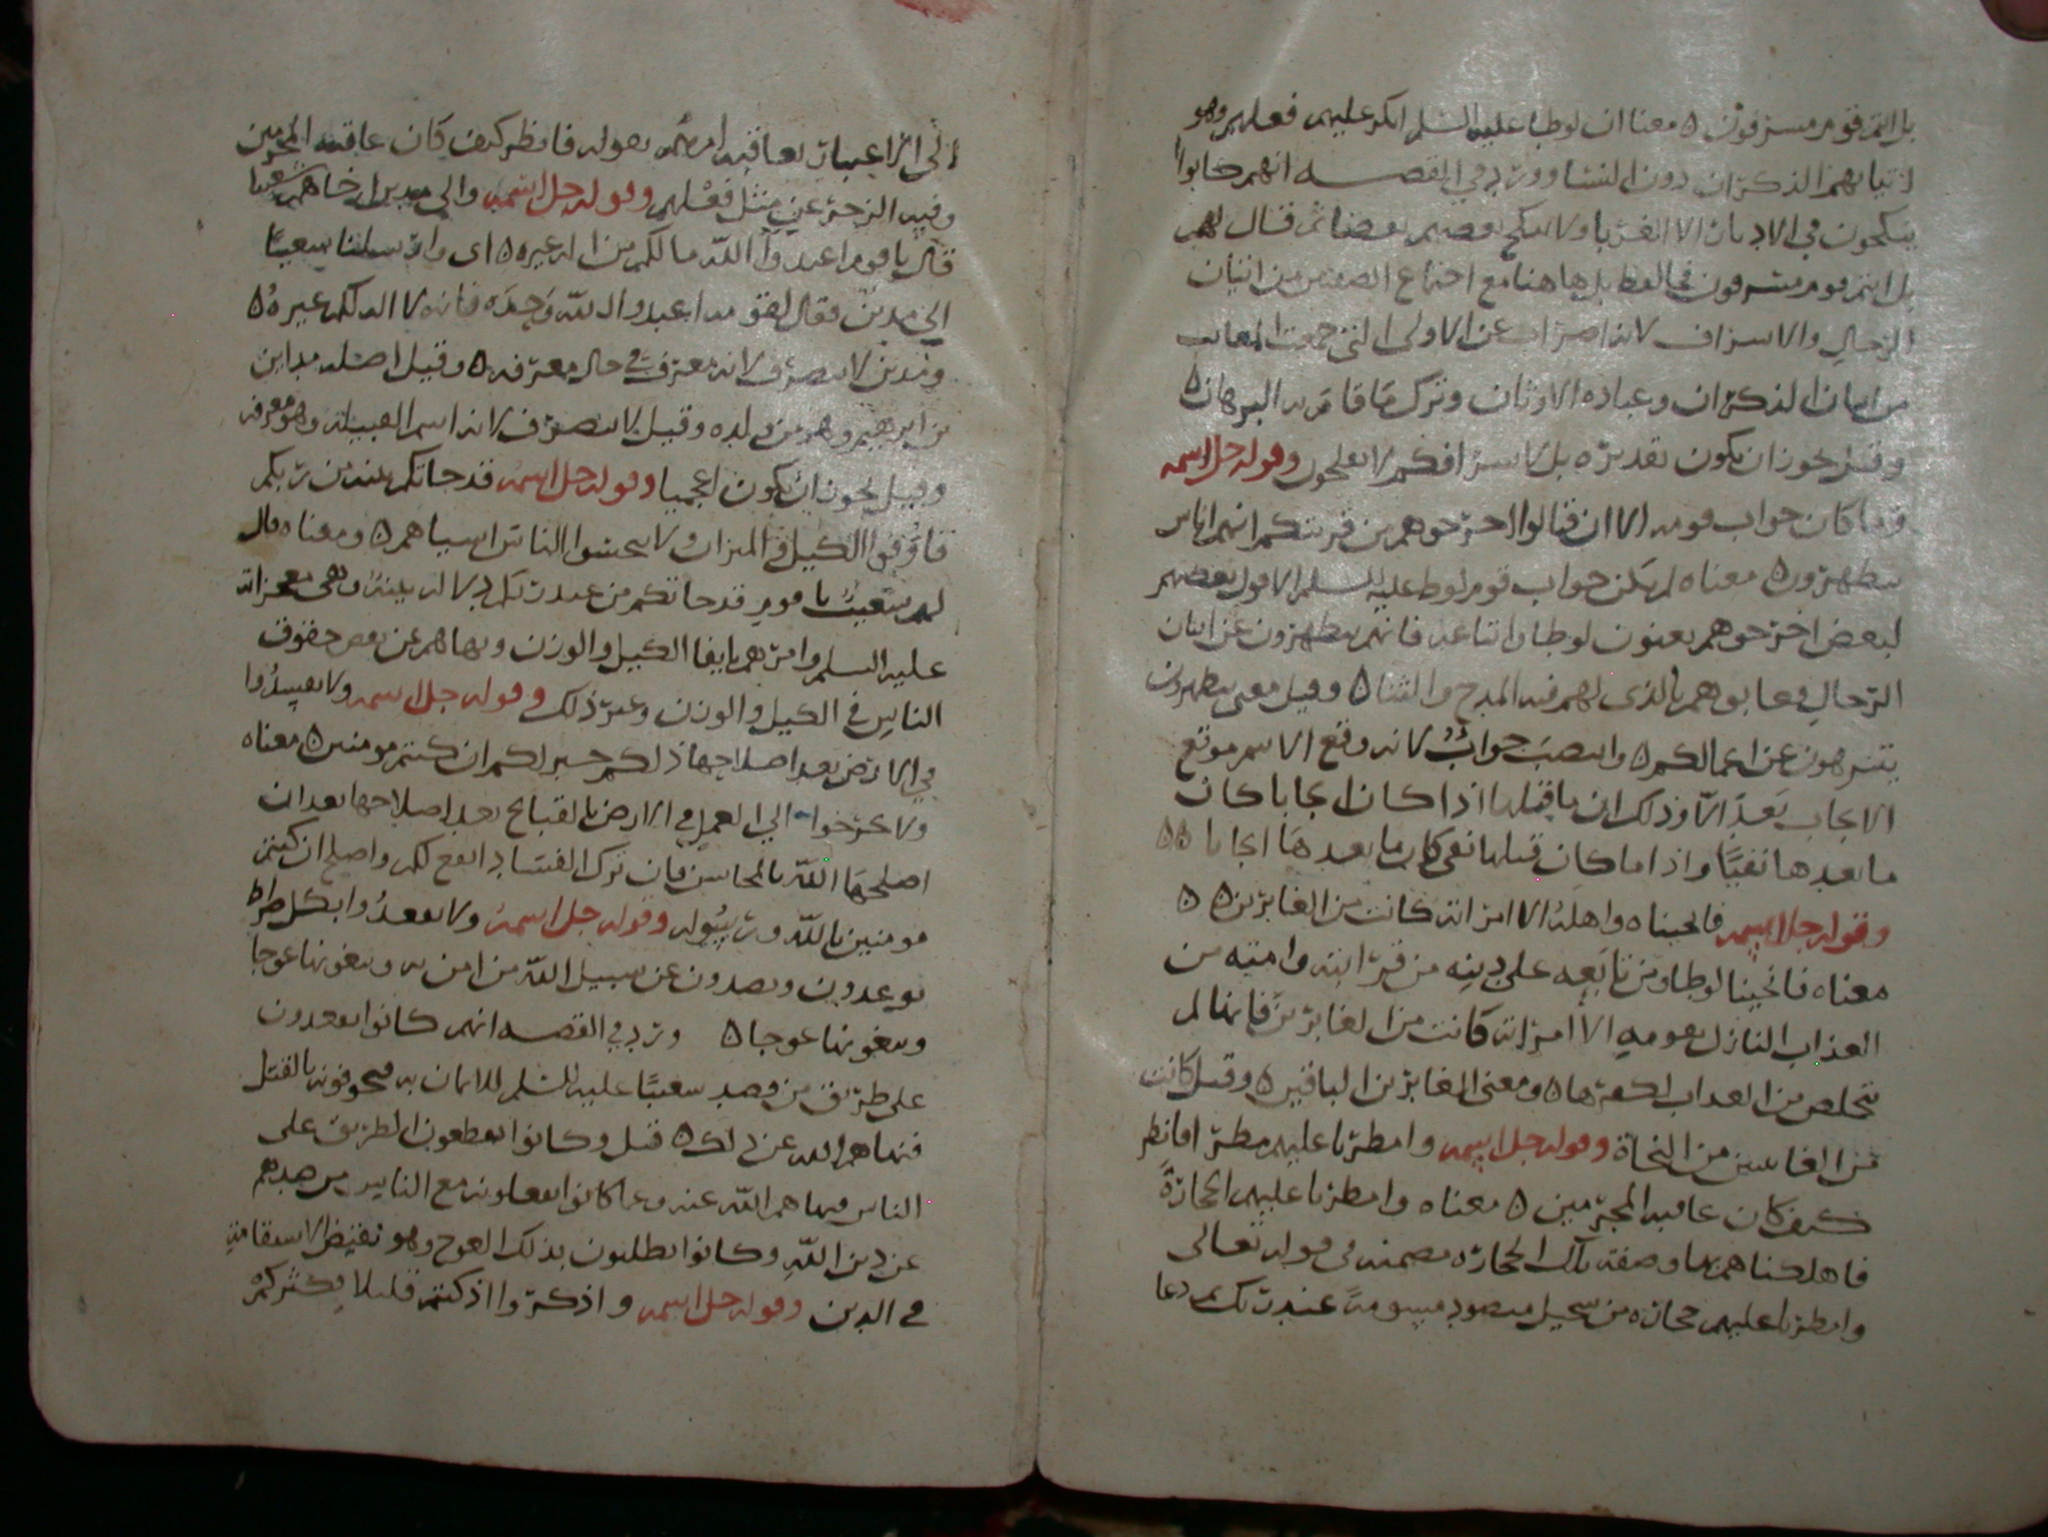 بل انتم قوم مسرفون ه معناه ان لوطا عليه السلم انكر عليهم فعلهم وهو
اتيانهم الذكران دون النسا وورد في القصه انهم كانوا
ينكحون في الادبار الا الغربا ولا ينكح بعضهم بعضا ثم قال لهم
بل انتم قوم مسرفون فالعطف بل هاهنا مع اجتماع الصفتين من اتيان
الرجال والاسراف لانه اضراب عن الاولى التي جمعت المعايب
من اتيان الذكران وعباده الاوثان وترك ما قام به البرهان ه
وقيل يجوز ان يكون تقديره بل لاسرافكم لا تفلحون وقوله جل اسمه
وما كان جواب قومه الا ان قالوا اخرجوهم من قريتكم انهم اناس
يتطهرون ه معناه لم يكن جواب قوم لوط عليه السلم الا قول بعضهم
لبعض اخرجوهم يعنون لوطا واتباعه فانهم يتطهرون عن اتيان
الرجال فعابوهم بالذي لهم فيه المدح والثنا ه وقيل معنى يتطهرون
يتنزهون عن اعمالكم ه وانتصب جواب لانه وقع الاسم موقع
الايجاب بعد الا وذلك ان ما قبلها اذا كان ايجابا كان
ما بعدها نفيا واذا ما كان قبلها نفي كان ما بعدها ايجابا ه ه
وقوله جل اسمه فانجيناه واهله الا امراته كانت من الغابرين ه ه
معناه فانجينا لوطا ومن تابعه على دينه من قرابته وامته من
العذاب النازل بقومه الا امراته كانت من الغابرين فانها لم
تتخلص من العذاب لكفرها ه ومعنى الغابرين الباقين ه وقيل كانت
من الغابرين من النجاة وقوله جل اسمه وامطرنا عليهم مطرا فانظر
كيف كان عاقبه المجرمين ه معناه وامطرنا عليهم الحجارة
فاهلكناهم بها وصفة تلك الحجاره مضمنه في قوله تعالى
وامطرنا عليهم حجاره من سجيل منضود مسومة عند ربك ثم دعا
الى الاعتبار بعاقبه امرهم بقوله فانظر كيف كان عاقبه المجرمين
وفيه الزجر عن مثل فعلهم وقوله جل اسمه والى مدين اخاهم شعيبا
قال يا قوم اعبدوا الله ما لكم من اله غيره ه اي وارسلنا شعيبا
الى مدين فقال لقومه اعبدوا الله وحده فانه لا اله لكم غيره ه
ومدين لا ينصرف لانه معرفة في حال معرفه ه وقيل اصله مداين
بن ابرهيم وهم من ولده وقيل لا ينصرف لانه اسم القبيله وهو معرفه
وقيل يجوز ان يكون اعجميا وقوله جل اسمه قد جاتكم بينه من ربكم
فاوفوا الكيل والميزان ولا تبخسوا الناس اشياهم ه ومعناه قال
لهم شعيب يا قوم قد جاتكم من عند ربكم دلاله بينه وهي معجزاته
عليه السلم وامرهم بايفا الكيل والوزن ونهاهم عن بعض حقوق
الناس في الكيل والوزن وغير ذلك وقوله جل اسمه ولا تفسدوا
في الارض بعد اصلاحها ذلكم خير لكم ان كنتم مومنين ه معناه
ولا تخرجوا الى العمل في الارض بالقبايح بعد اصلاحها بعد ان
اصلحها الله بالمحاسن فان ترك الفساد انفع لكم واصلح ان كنتم
مومنين بالله ورسوله وقوله جل اسمه ولا تقعدوا بكل صراط
توعدون وتصدون عن سبيل الله من امن به وتبغونها عوجا
وتبغونها عوجا ه ورد في القصه انهم كانوا يقعدون
على طريق من قصد شعيبا عليه السلم للايمان به فيخوفونه بالقتل
فنهاهم الله عن ذلك ه قيل وكانوا يقطعون الطريق على
الناس فنهاهم الله عنه وعما كانوا يفعلونه مع الناس من صدهم
عن دين الله وكانوا يطلبون بذلك العوج وهو نقيض الاستقامة
في الدين وقوله جل اسمه واذكروا اذ كنتم قليلا فكثركم